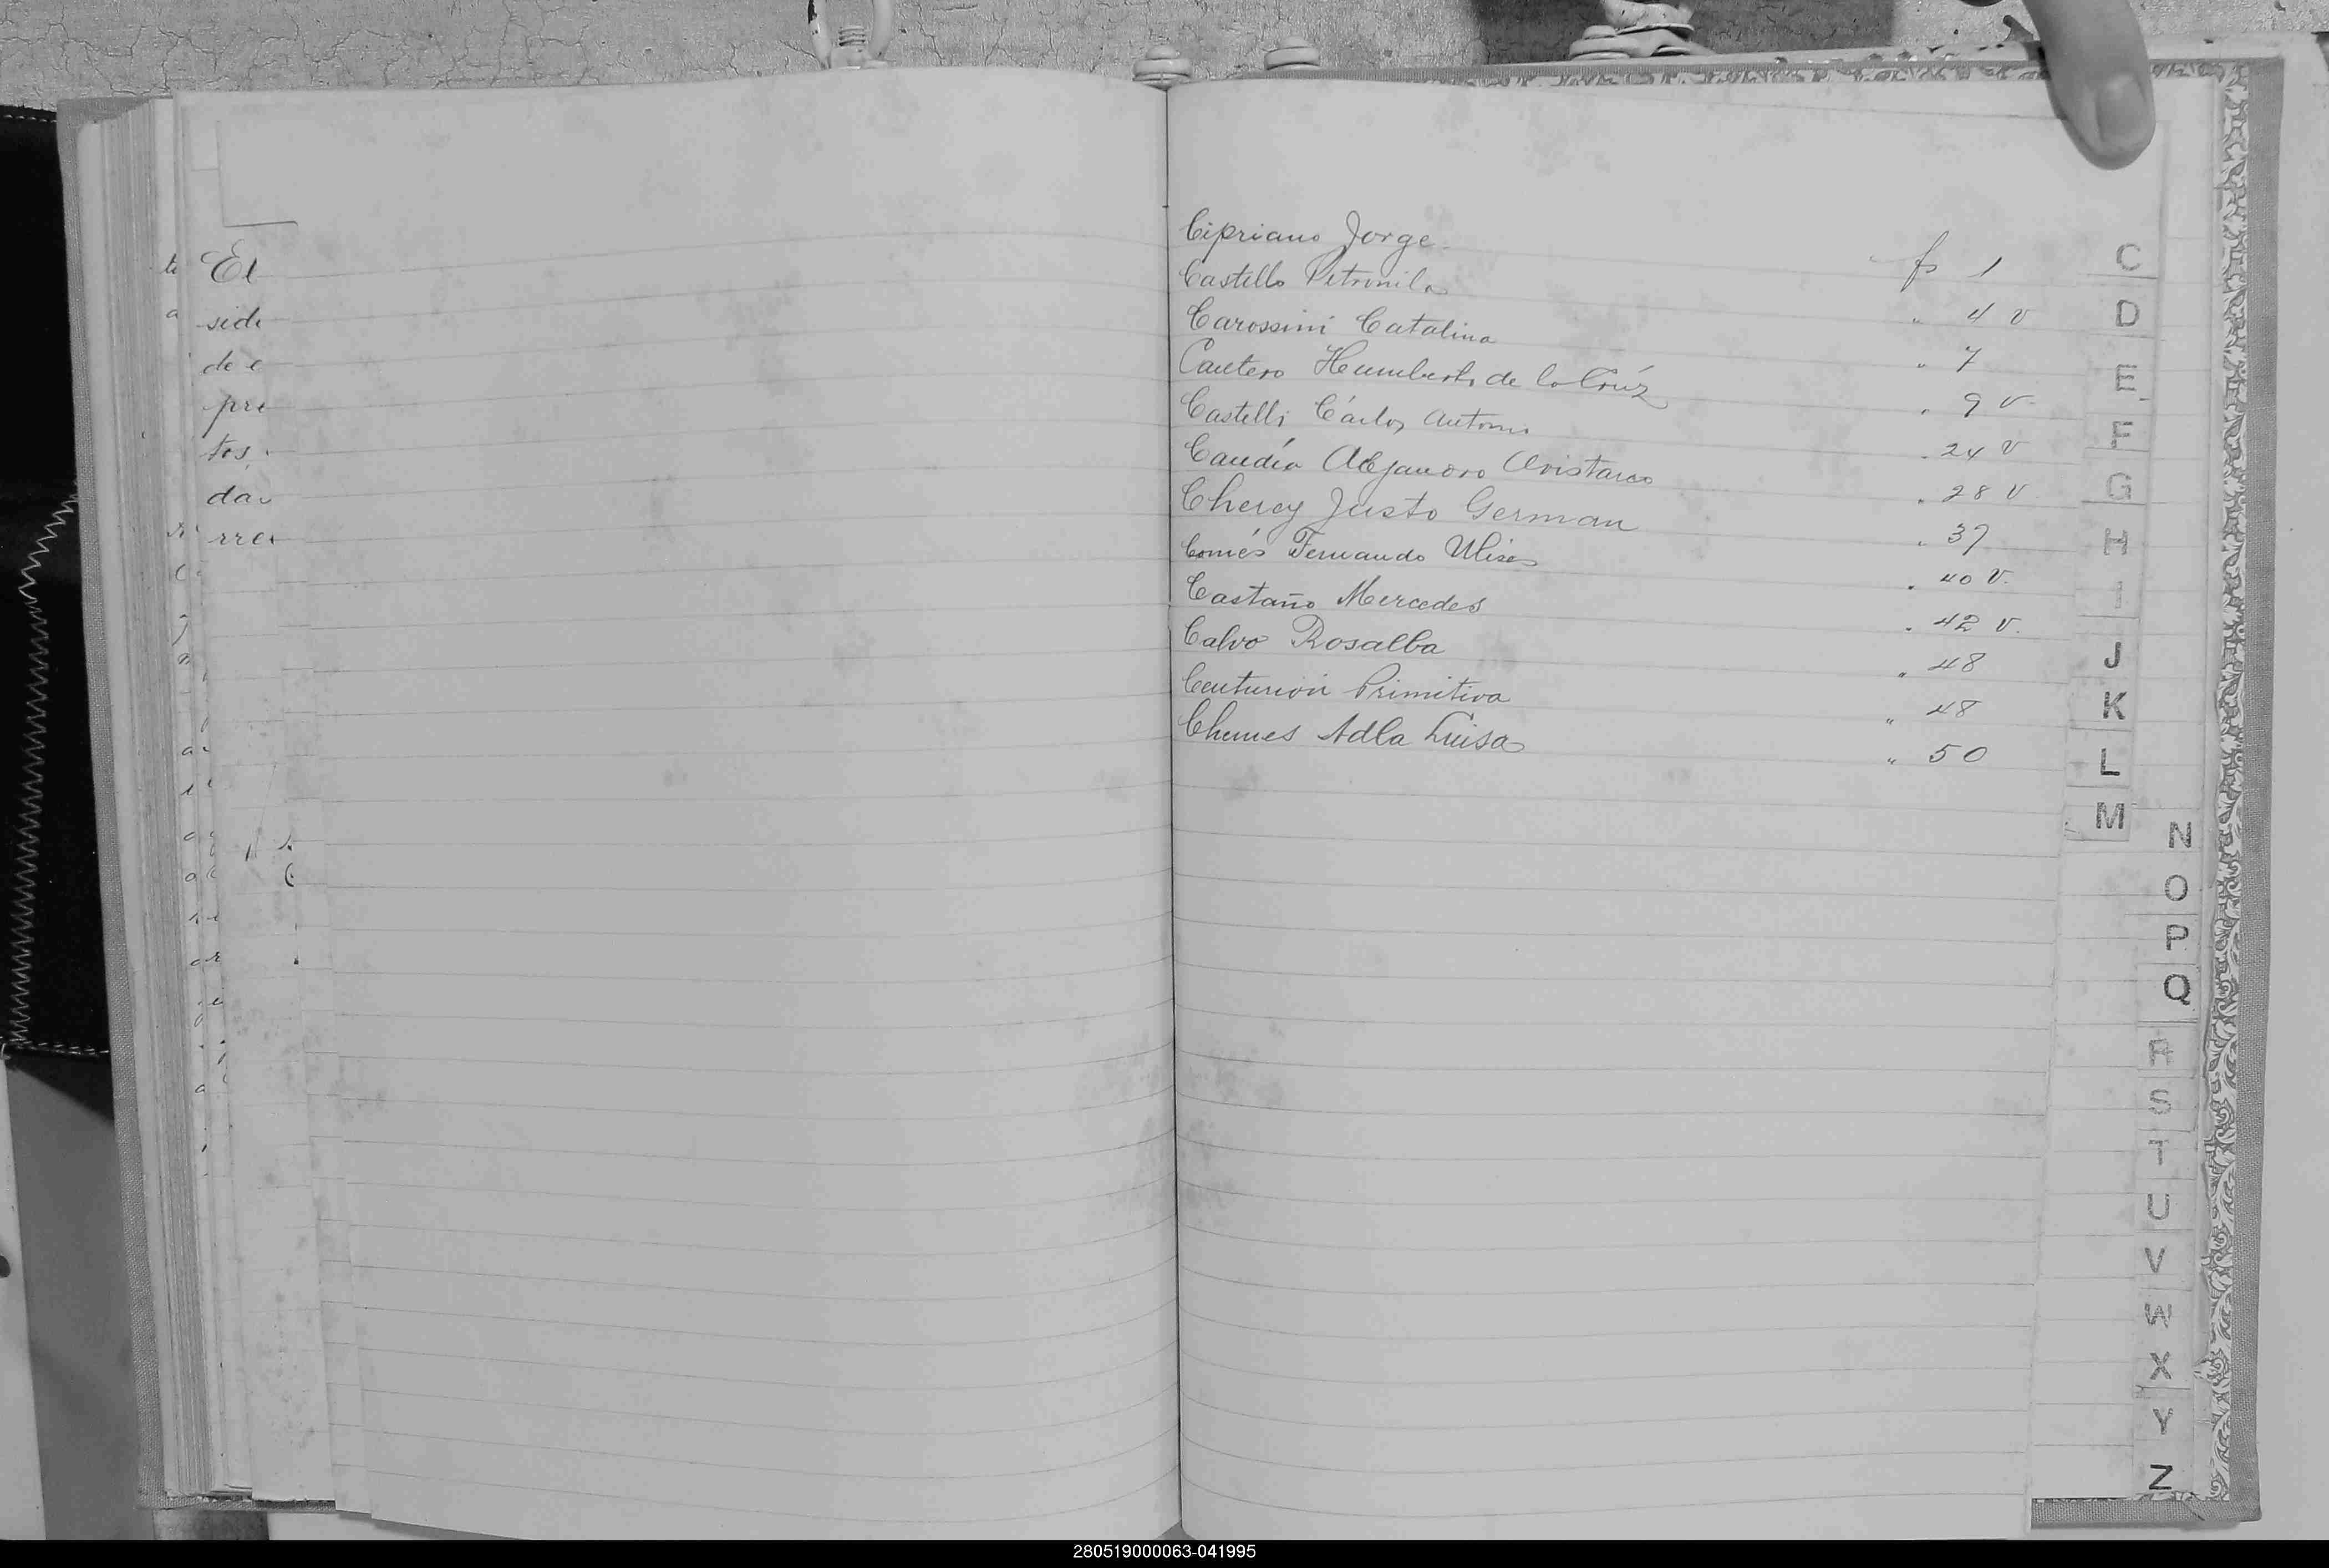 El
side
de e
pre
tos,
dar
rre
Cipriano Jorge fs 1
Castello Petronila " 4 v
Carossini Catalina " 7
Cantero Humberto de la Crúz " 9 v
Castelli Cárlos Antonio " 24 v
Candía Alejandro Aristarco " 28 v
Cherey Justo German " 37
Comés Fernando Ulises " 40 v.
Castaño Mercedes " 42 v.
Calvo Rosalba " 48
Centurión Primitiva " 48
Chemes Adla Luisa " 50
C
D
E
F
G
H
I
J
K
L
M
N
O
P
Q
R
S
T
U
V
W
X
Y
Z
280519000063-041995